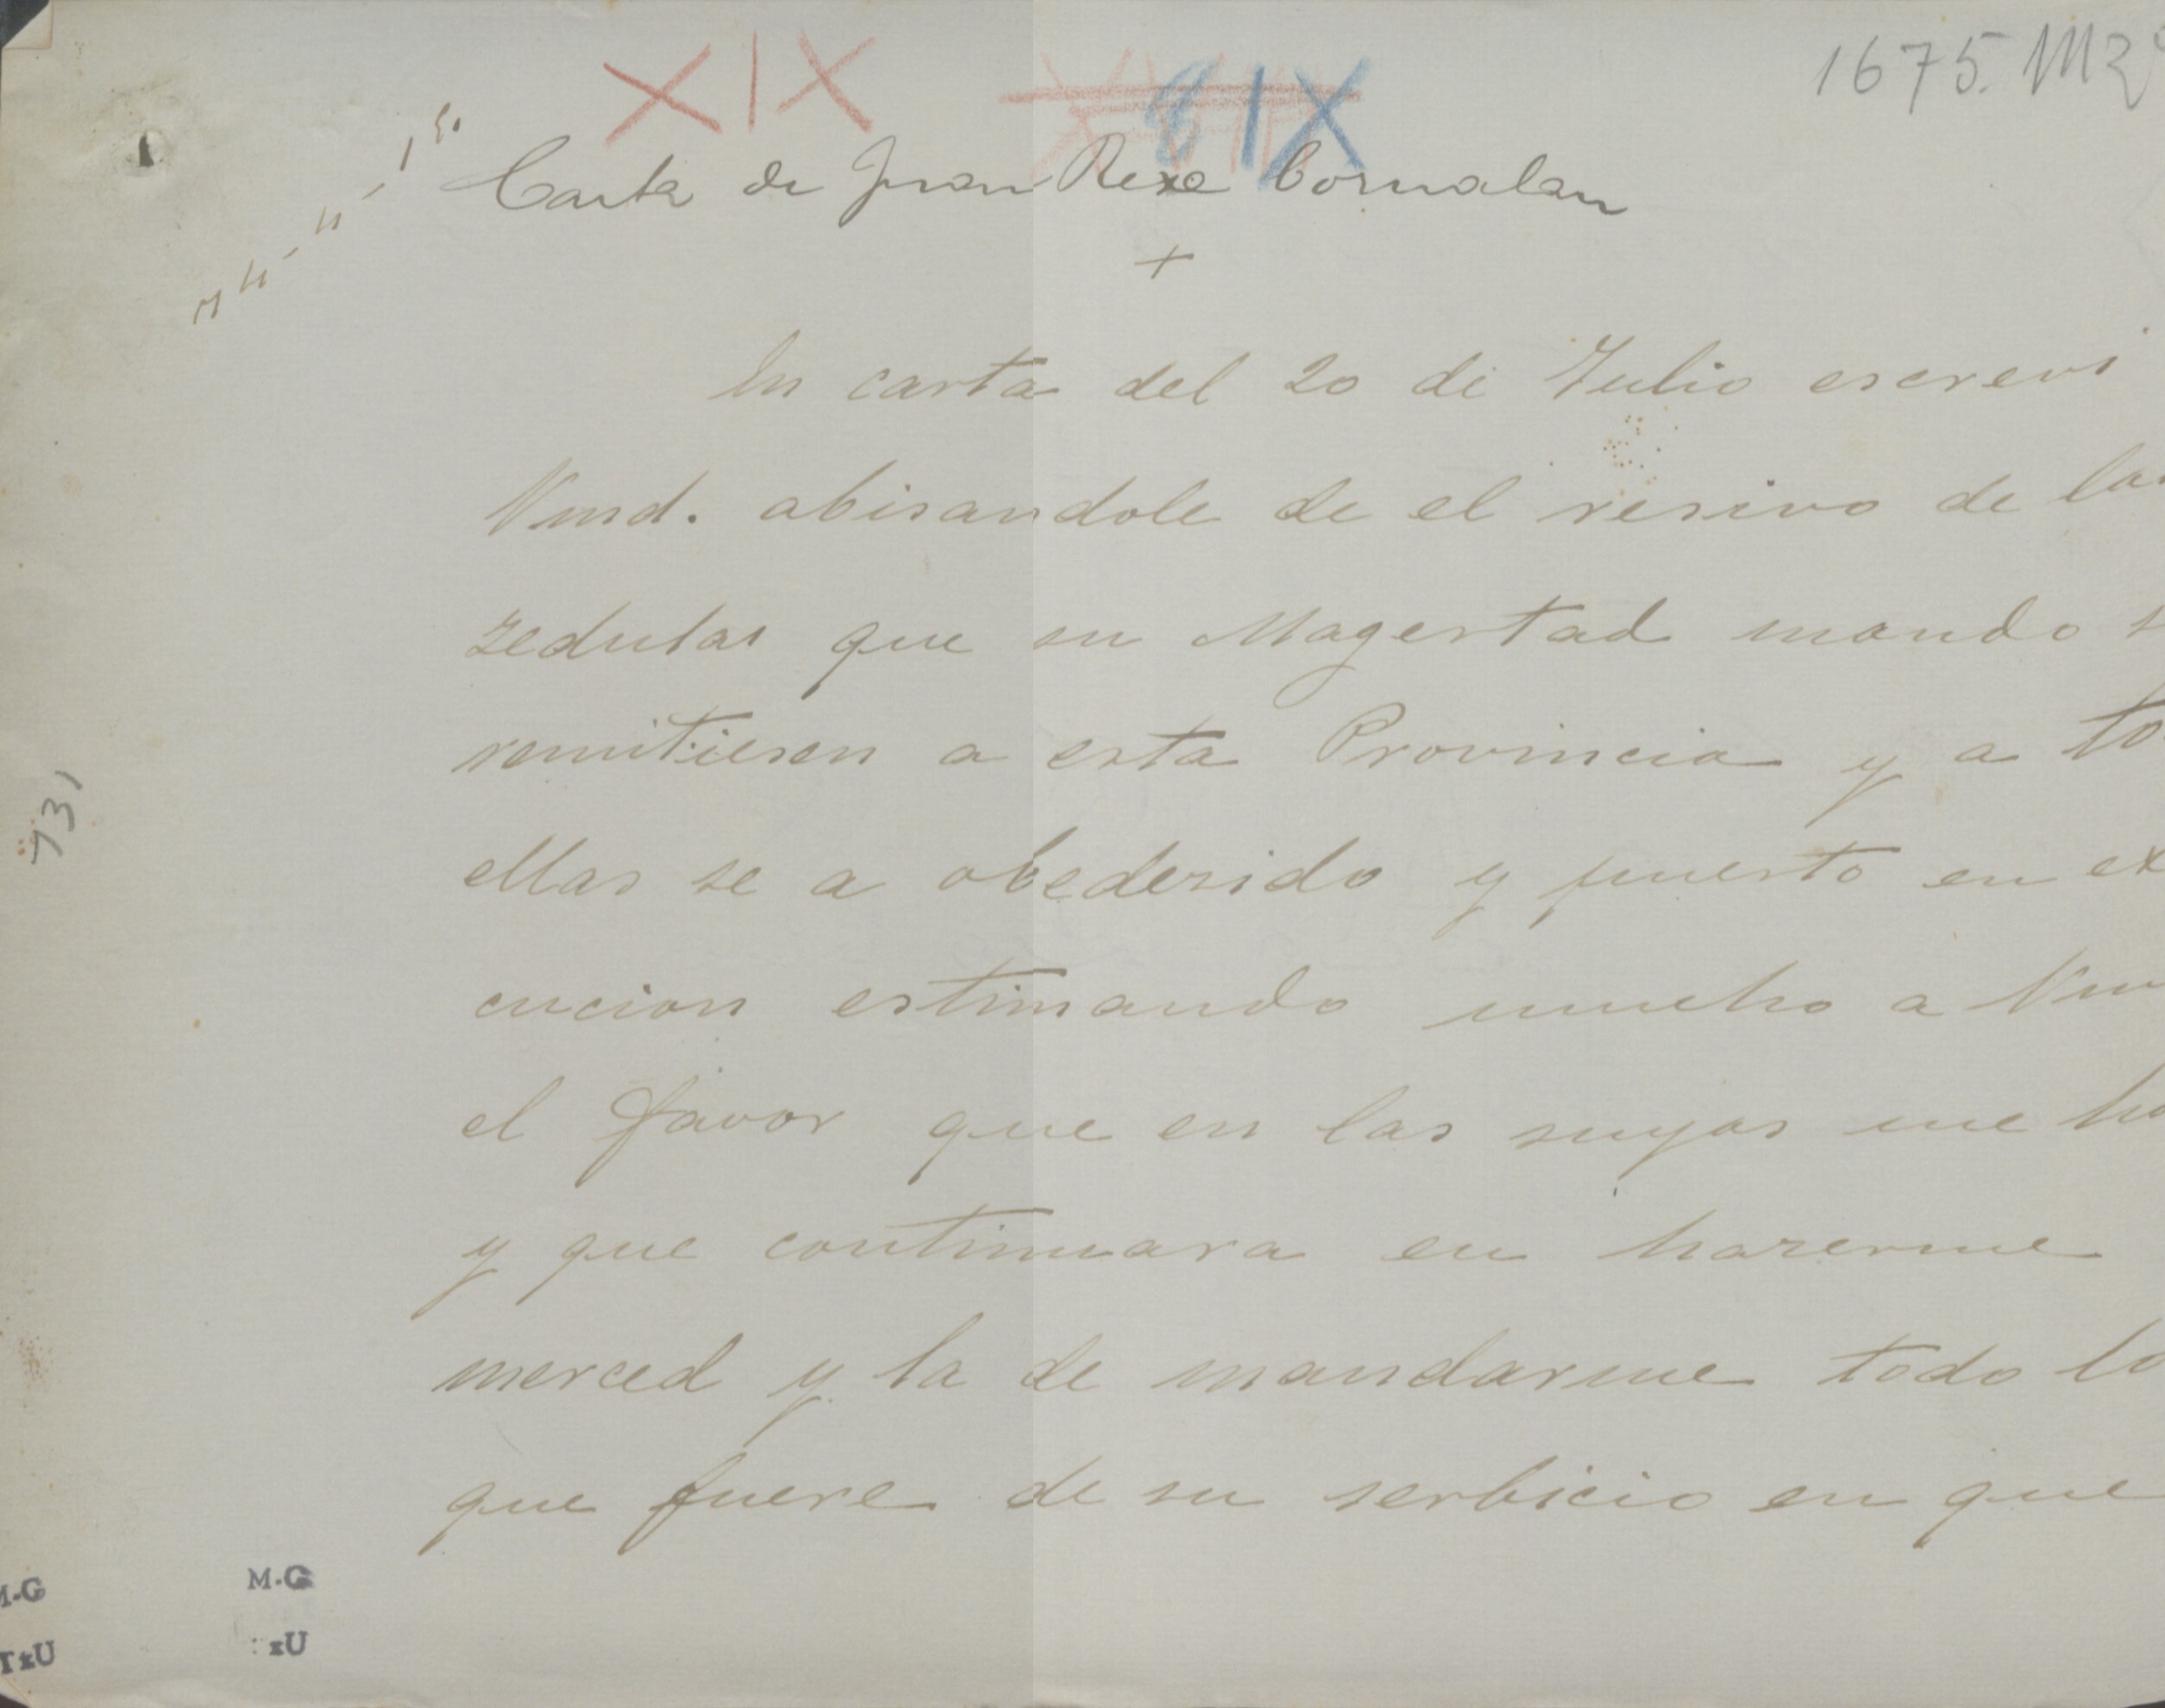 XIX IX
1675.
Carta de Juan Rexe Cornalan
+
En carta del 20 de Julio escrevi
Vmd. abisandole de el resivo de las
zedulas que su Magestad mando s
remitiesen a esta Provincia y a to
ellas se a obedezido y puesto en ex
cucion estimando mucho a Vm
el favor que en las suyas me ha
y que continuara en hazerme
merced y la de mandarme todo lo
que fuere de su serbicio en que
731
M-G M-G
TxU xU